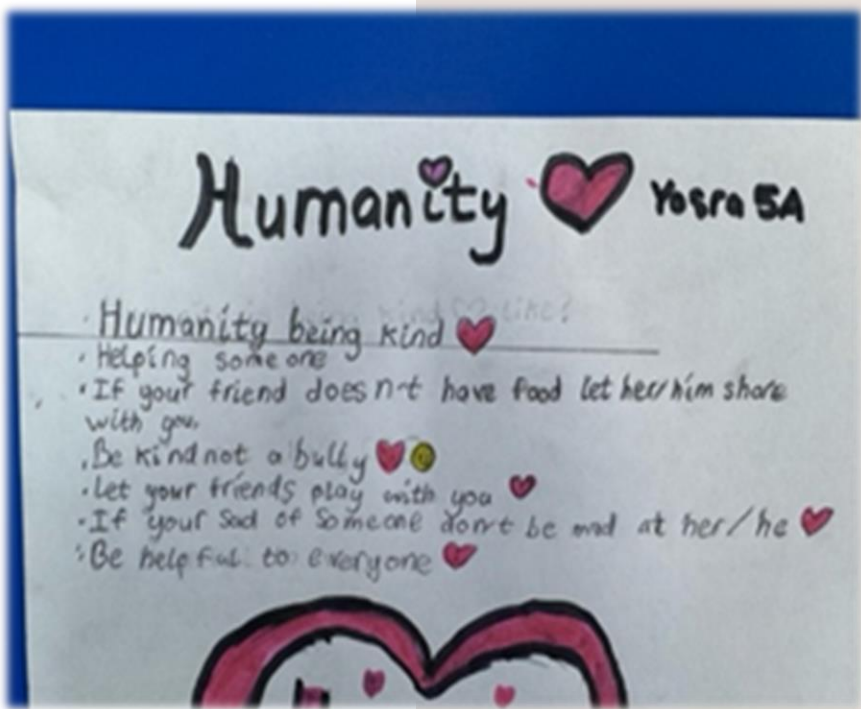 Humanity Yosra 5A
· Humanity being kind
· Helping some one
· If your friend does n't have food let her/him share
with you.
· Be kind not a bully
· Let your friends play with you
· If your sad of someone don't be mad at her/he
· Be helpful to everyone